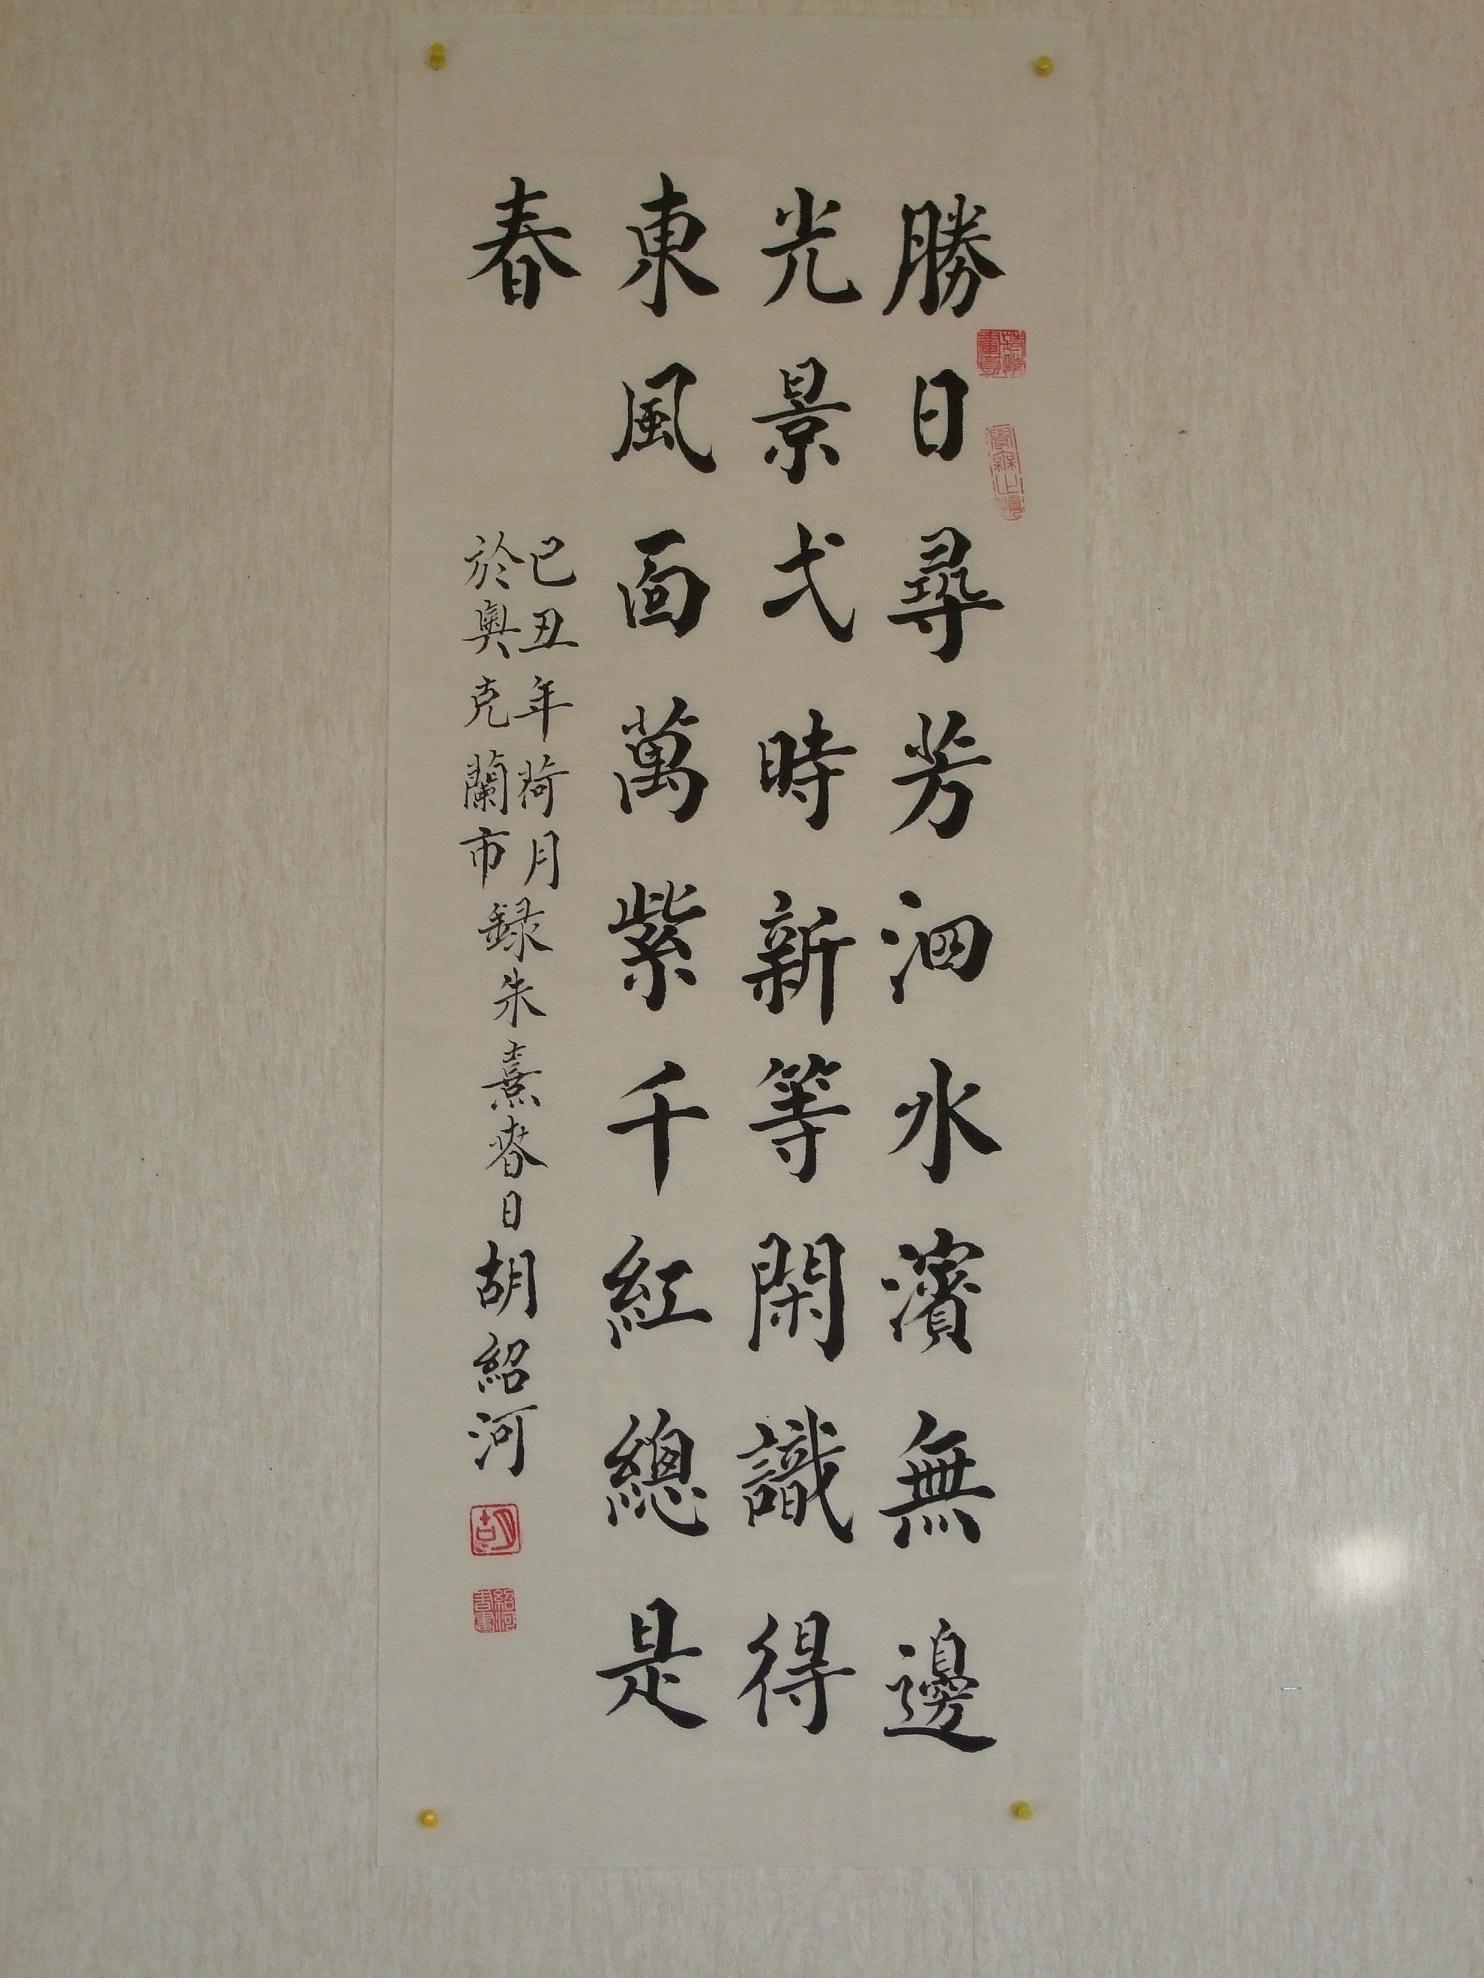 勝日尋芳泗水濱無邊
光景弌時新等閑識得
東風面萬紫千紅總是
春
己丑年荷月錄朱熹春日胡紹河
於奥克蘭市
胡
紹河書畫